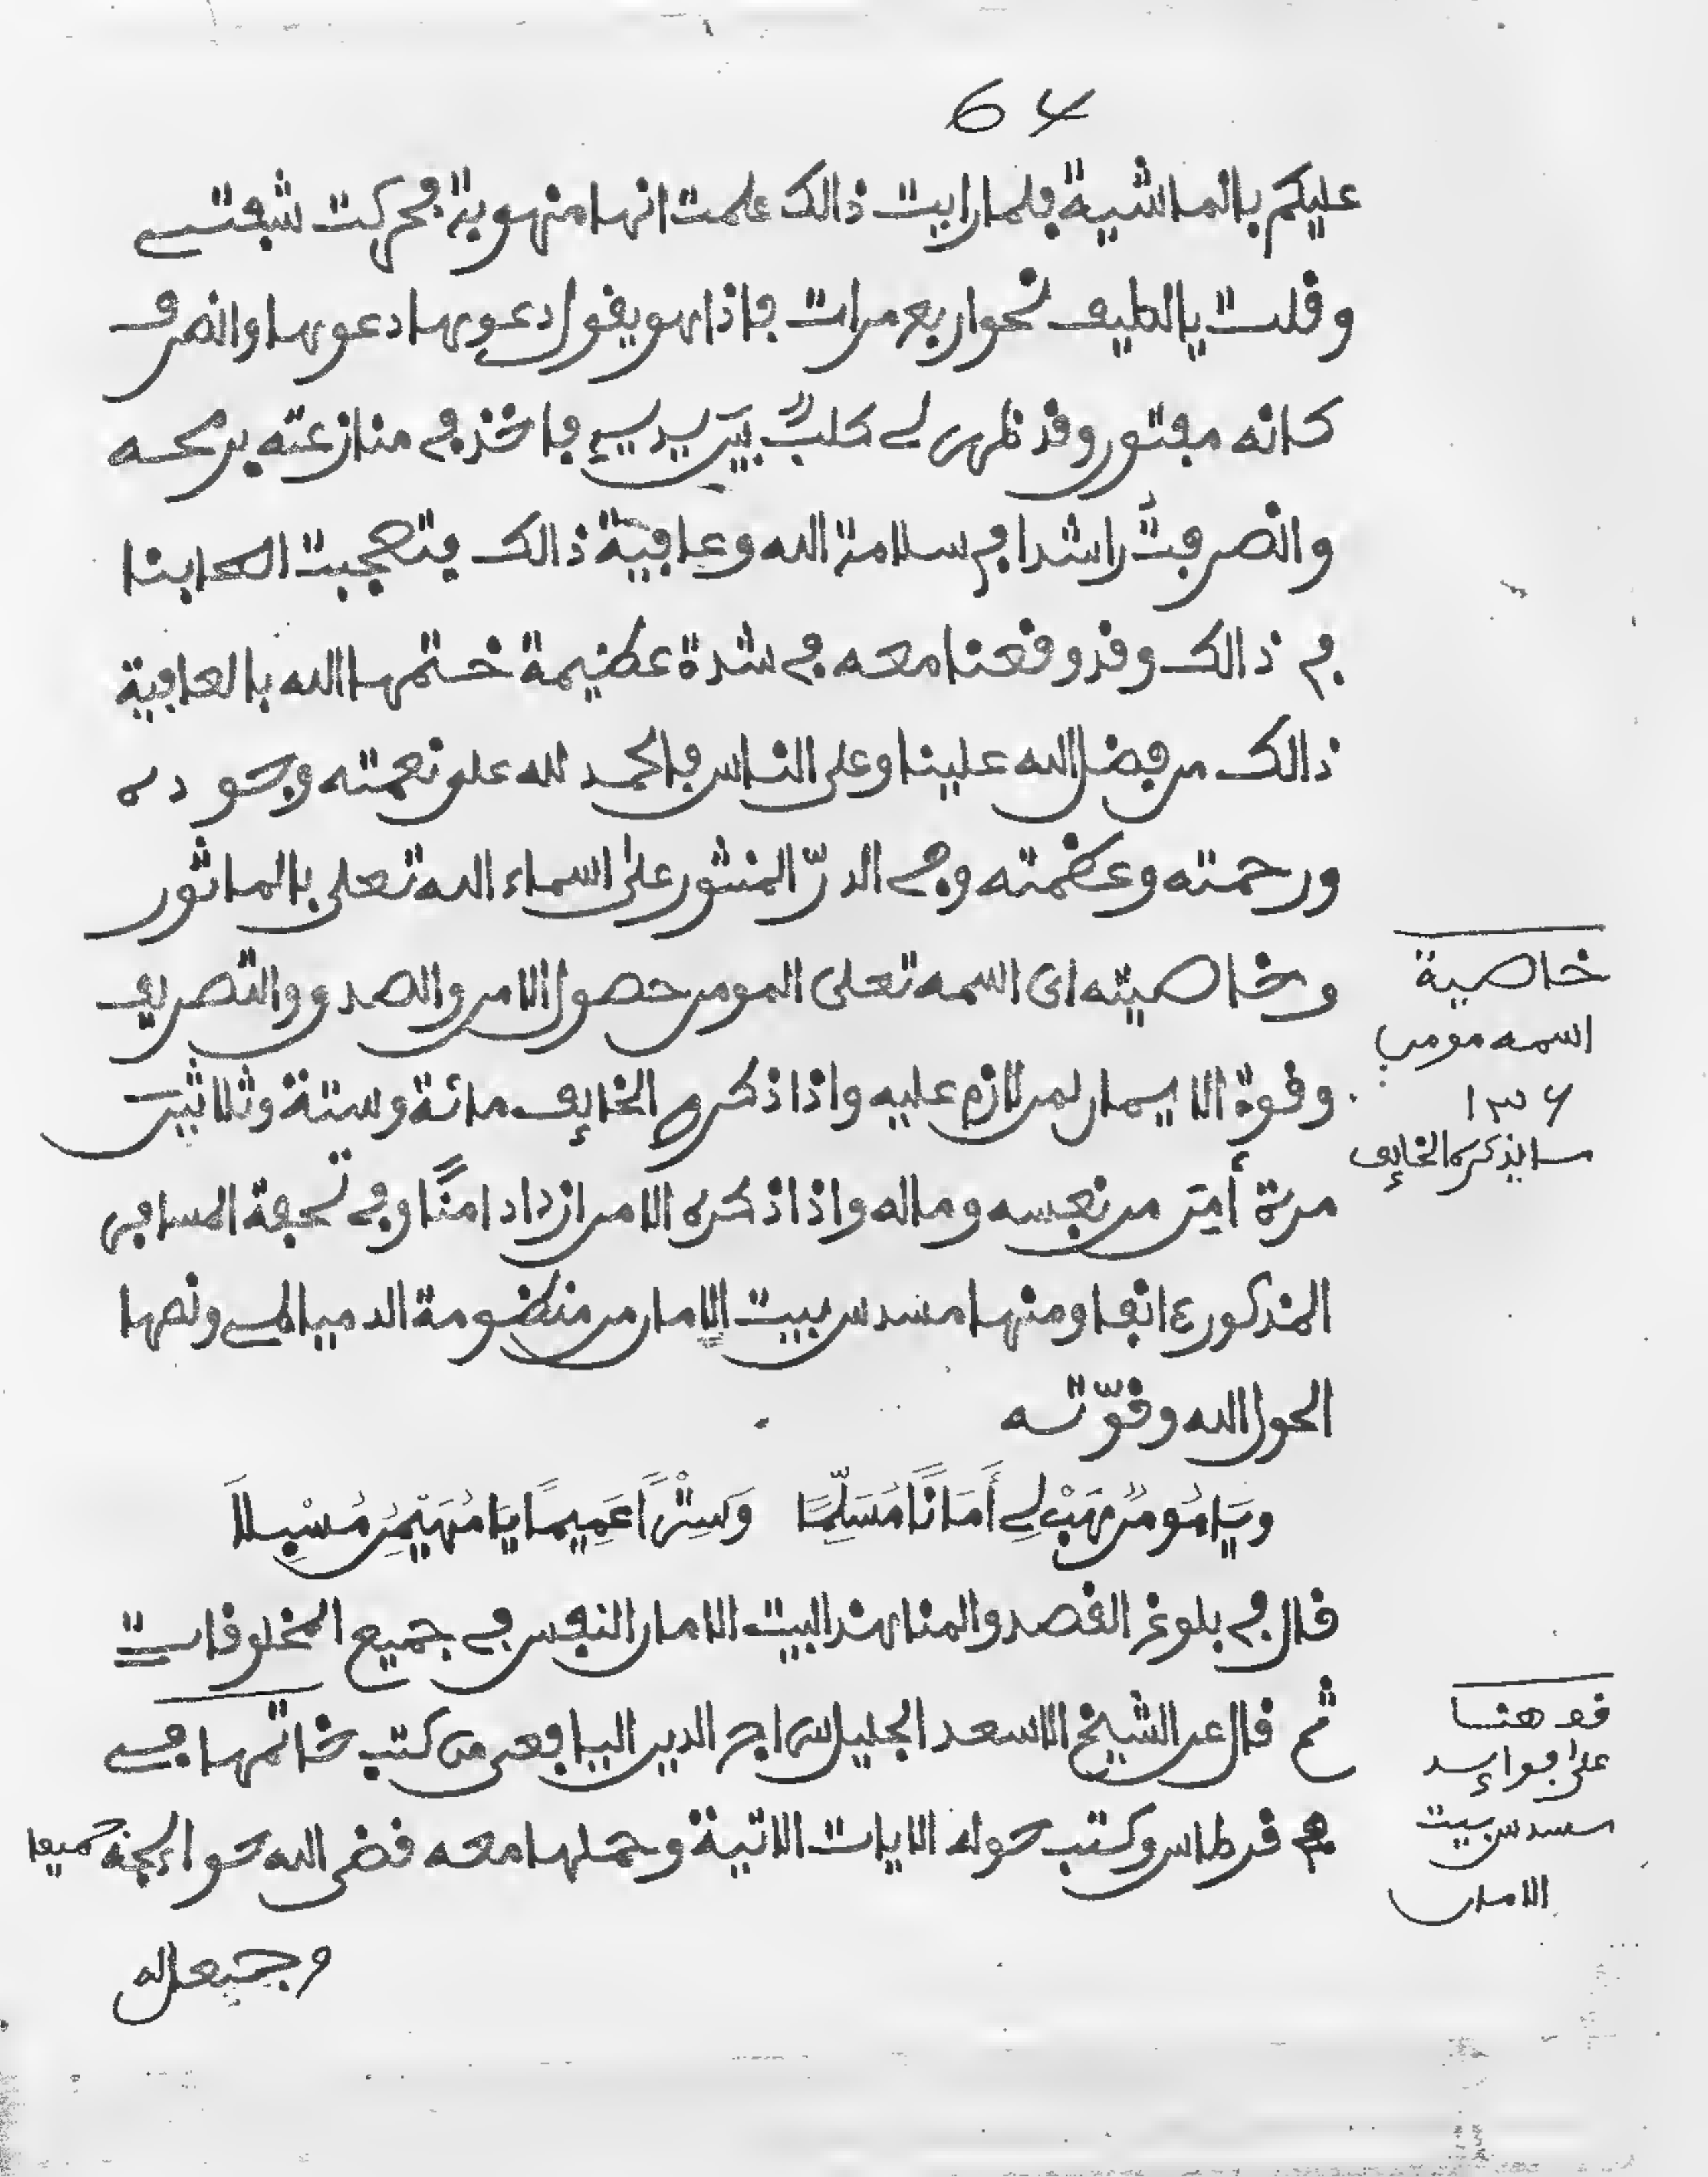 64
عليكم بالماشية فلما رايت ذالك علمت انها منهوبة فحركت شفتي
وقلت يالطيف نحو اربع مرات فاذا هو يقول دعوها دعوها وانصرف
كانه مفتور وقد ظهر لي كلبٌ بين يديه فاخذ في منازعته برمحه
وانصرفتُ راشدا في سلامة الله وعافية ذالك فتعجبت اصحابنا
في ذالك وقد وقعنا معه في شدة عظيمة ختمها الله بالعافية
ذالك من فضل الله علينا وعلى الناس فالحمد لله على نعمته وجوده
ورحمته وعظمته وفي الدرّ المنثور على اسماء الله تعلى بالماثور
وخاصيته اى اسمه تعلى المومن حصول الامن والصدق والتصريف
وقوة الايمان لمن لازم عليه واذا ذكره الخايف مائة وستة وثلاثين
مرة أمِن من نفسه وماله واذا ذكره الامن ازداد امنًا وفي تحفة المسافر
المذكور ءانفا ومنها مسدس ببيت الامان من منظومة الدمياطي ونصها
الحول الله وقوّته
وَيَا مُومنُ هَبْ لِي أَمَانًا مُسَلِّمًا وَسِتْرًا عَمِيمًا يَا مُهَيْمِنُ مُسْبِلاَ
قال في بلوغ القصد والمنا هذا البيت الامان النفس في جميع المخلوقات
ثم قال عن الشيخ الاسعد الجليل سراج الدين اليافعي من كتب خاتمها في
قرطاس وكتب حوله الايات الاتية وحملها معه قضى الله حوائجه جميعا
وجعل له
خاصية
اسمه مومن
١٣٦
يذكره الخايف
قف هنا
على فوايد
مسدس بيت
الامان